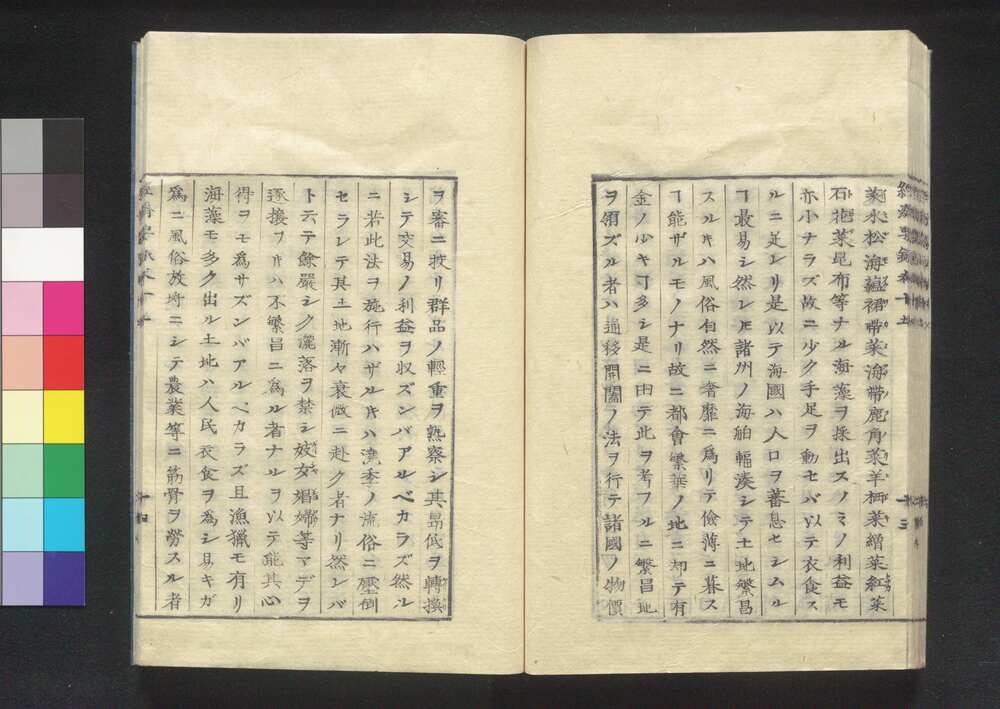 海松海蘊裙帶菜海帶鹿角菜羊栖菜繒菜紅菜
石花菜昆布等ナル海藻ヲ採出スノミノ利益モ
亦小ナラズ故ニ少ク手足ヲ動セバ以テ衣食ス
ルニ足レリ是以テ海國ハ人口ヲ蕃息セシムル
ヿ最易シ然レ𪜈諸州ノ海舶輻湊シテ土地繁昌
スルキハ風俗自然ニ奢靡ニ為リテ儉薄ニ暮ス
ヿ能ザルモノナリ故ニ都會繁華ノ地ニ却テ有
金ノ少キヿ多シ是ニ由テ此ヲ考フルニ繁昌地
ヲ領ズル者ハ通移開闔ノ法ヲ行テ諸國ノ物價
ヲ審ニ按リ群品ノ輕重ヲ熟察シ其昂低ヲ轉換
シテ交易ノ利益ヲ収ズンバアルベカラズ然ル
ニ若此法ヲ施行ハザルキハ澆季ノ流俗ニ壓倒
セラレテ其土地漸々衰微ニ赴ク者ナリ然レバ
ト云テ餘嚴シク灑落ヲ禁シ妓女娼婦等マデヲ
逐攘フキハ不繁昌ニ為ル者ナルヲ以テ能其心
得ヲモ為サズンバアルベカラズ且漁獵モ有リ
海藻モ多ク出ル土地ハ人民衣食ヲ為シ易キガ
為ニ風俗放埓ニシテ農業等ニ筋骨ヲ勞スル者